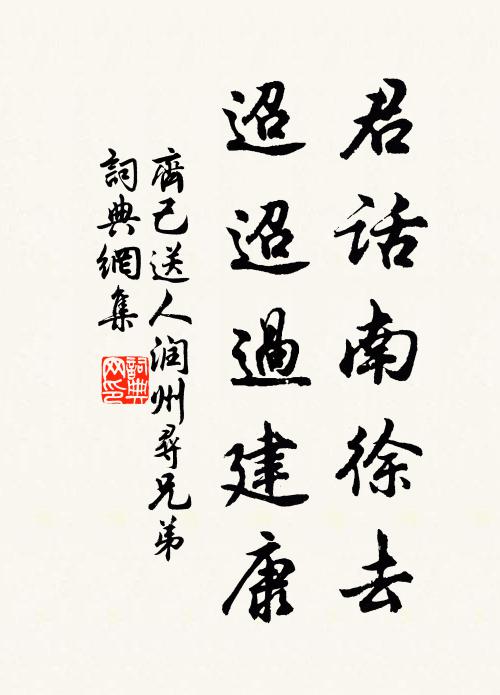 君话南徐去
迢迢過建康
齊己送人润州尋兄弟
詞典網集
詞典网印